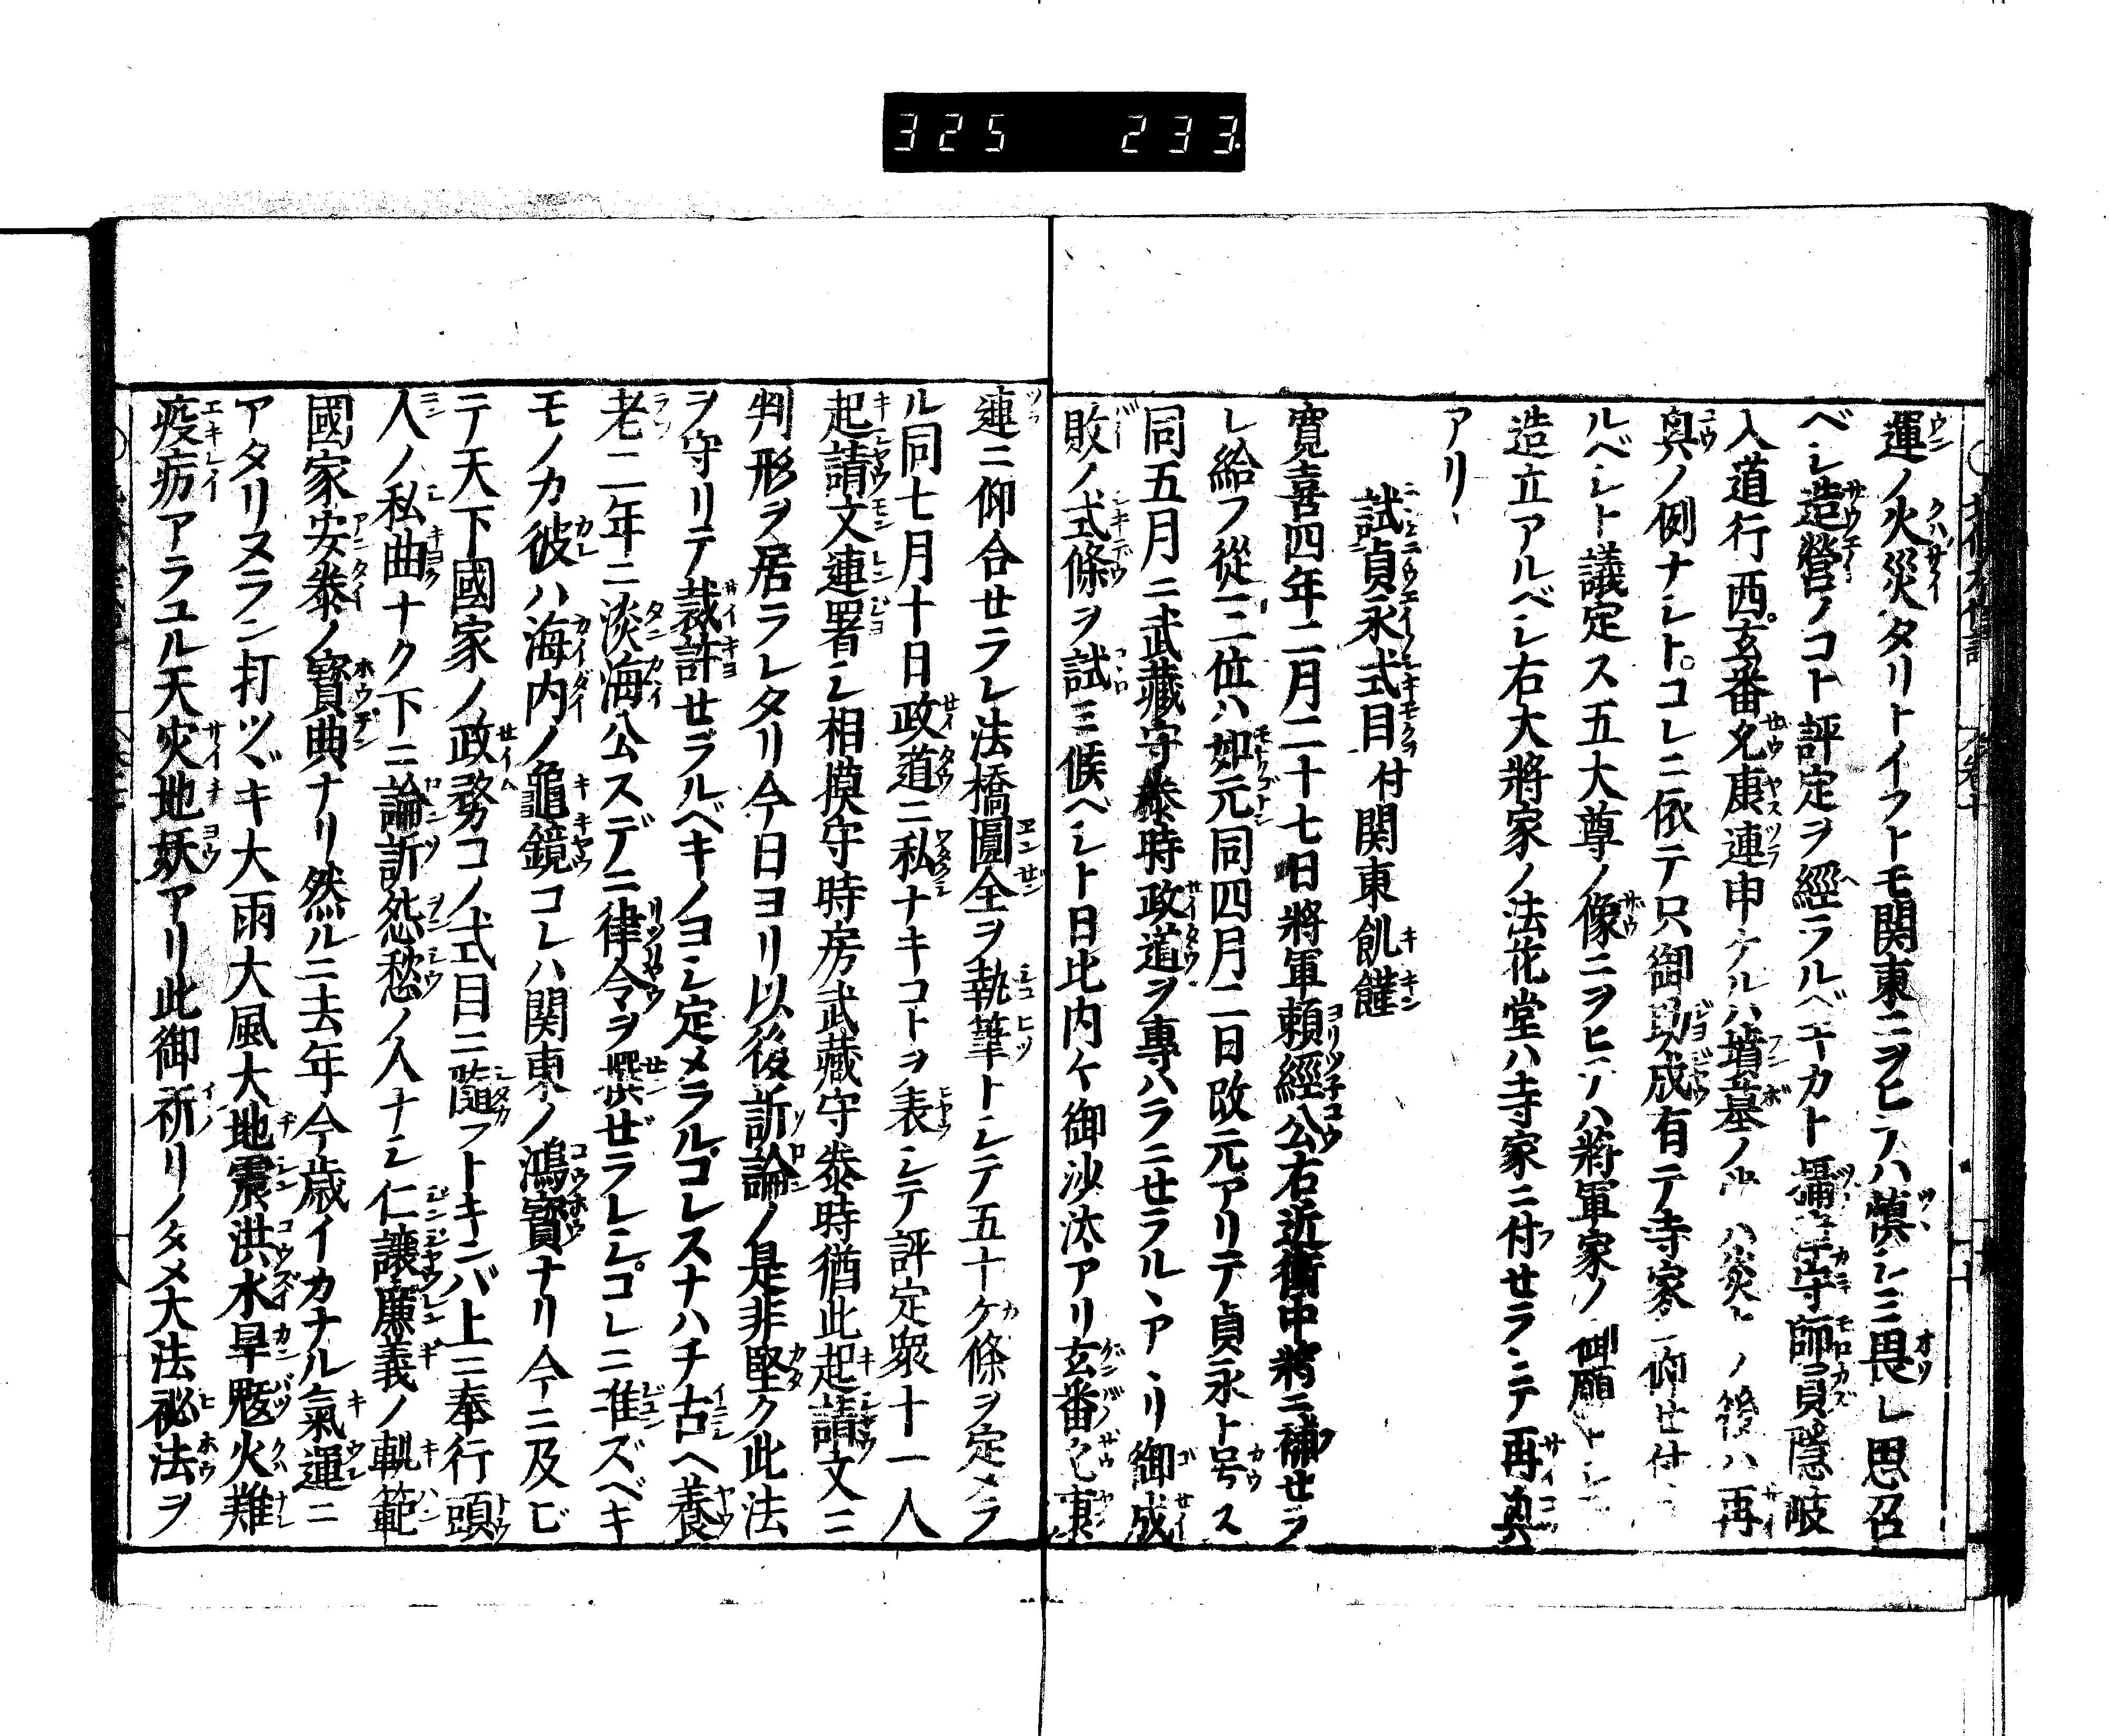 325 233
運ノ火災タリトイフトモ関東ニヲヒテハ慎シミ畏レ思召
ベシ造營ノコト評定ヲ經ラルベキカト攝津守師員隱岐
入道行西玄番允康連申ケルハ墳墓ノ ハ炎 ノ後ハ再
興ノ例ナシトコレニ依テ只御助成有テ寺家ニ仰せ付
ルベシト議定ス五大尊ノ像ニヲヒテハ將軍家ノ御願トシ
造立アルベシ右大將家ノ法花堂ハ寺家ニ付せラレテ再興
アリ
試貞永式目付関東飢饉
寛喜四年二月二十七日將軍頼經公右近衛中將ニ補せラ
レ給フ從三位ハ如元同四月二日改元アリテ貞永ト号ス
同五月ニ武藏守泰時政道ヲ專ハラニせラルヽアリ御成
敗ノ式條ヲ試ミ候ベシト日比内々御沙汰アリ玄番允康
連ニ仰合せラレ法橋圓全ヲ執筆トシテ五十ケ條ヲ定メラ
ル同七月十日政道ニ私ナキコトヲ表シテ評定衆十一人
起請文連署シ相摸守時房武藏守泰時猶此起請文ニ
判形ヲ居ラレタリ今日ヨリ以後訴論ノ是非堅ク此法
ヲ守リテ裁許せラルベキノヨシ定メラルコレスナハチ古ヘ養
老二年ニ淡海公スデニ律令ヲ撰ぜラレシコレニ准ズベキ
モノカ彼ハ海内ノ龜鏡コレハ関東ノ鴻寶ナリ今ニ及ビ
テ天下國家ノ政務コノ式目ニ隨フトキンバ上ニ奉行頭
人ノ私曲ナク下ニ論訴怨愁ノ人ナシ仁讓廉義ノ軌範
國家安泰ノ寳典ナリ然ルニ去年今歳イカナル氣運ニ
アタリヌラン打ツヾキ大雨大風大地震洪水旱魃火難
疫疠アラユル天災地妖アリ此御祈リノタメ大法祕法ヲ